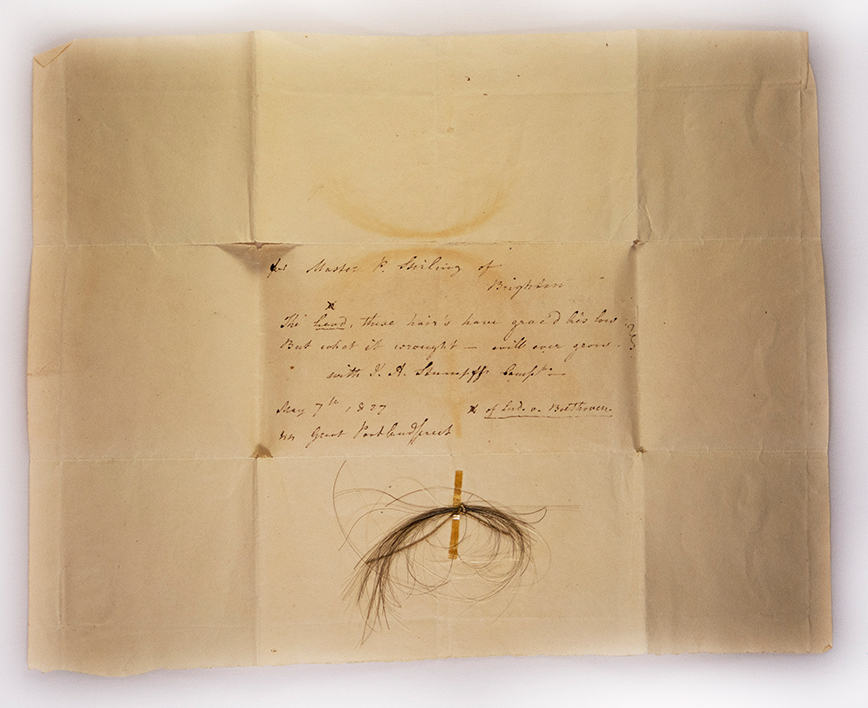 for Master P. Stirling of
Brighton
x
The head, these hair's have grac'd his low
But what it wrought — will ever grow.
with J. A. Stumpff's Compts—
May 7th 1827
x of Lud. v. Beethoven.
44 Great Portland Street